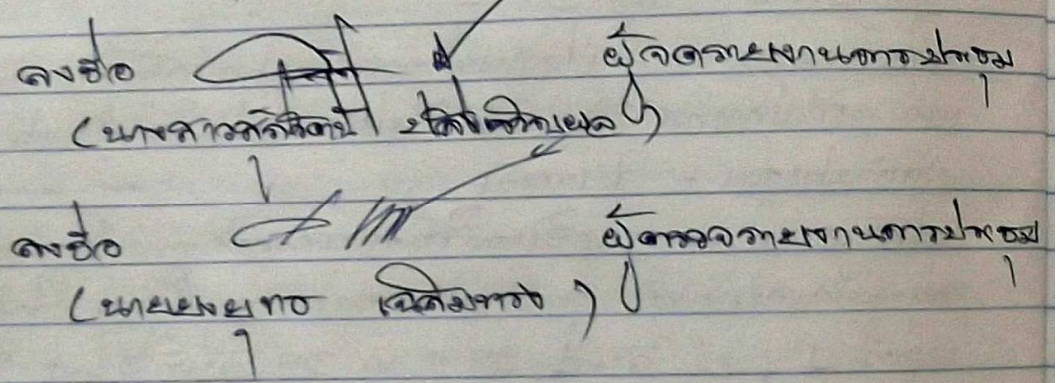 ลงชื่อ ผู้จดรายงานการประชุม
(นางสาว
ลงชื่อ ผู้ตรวจรายงานการประชุม
(นายยงยุทธ เฉลิมทรง)